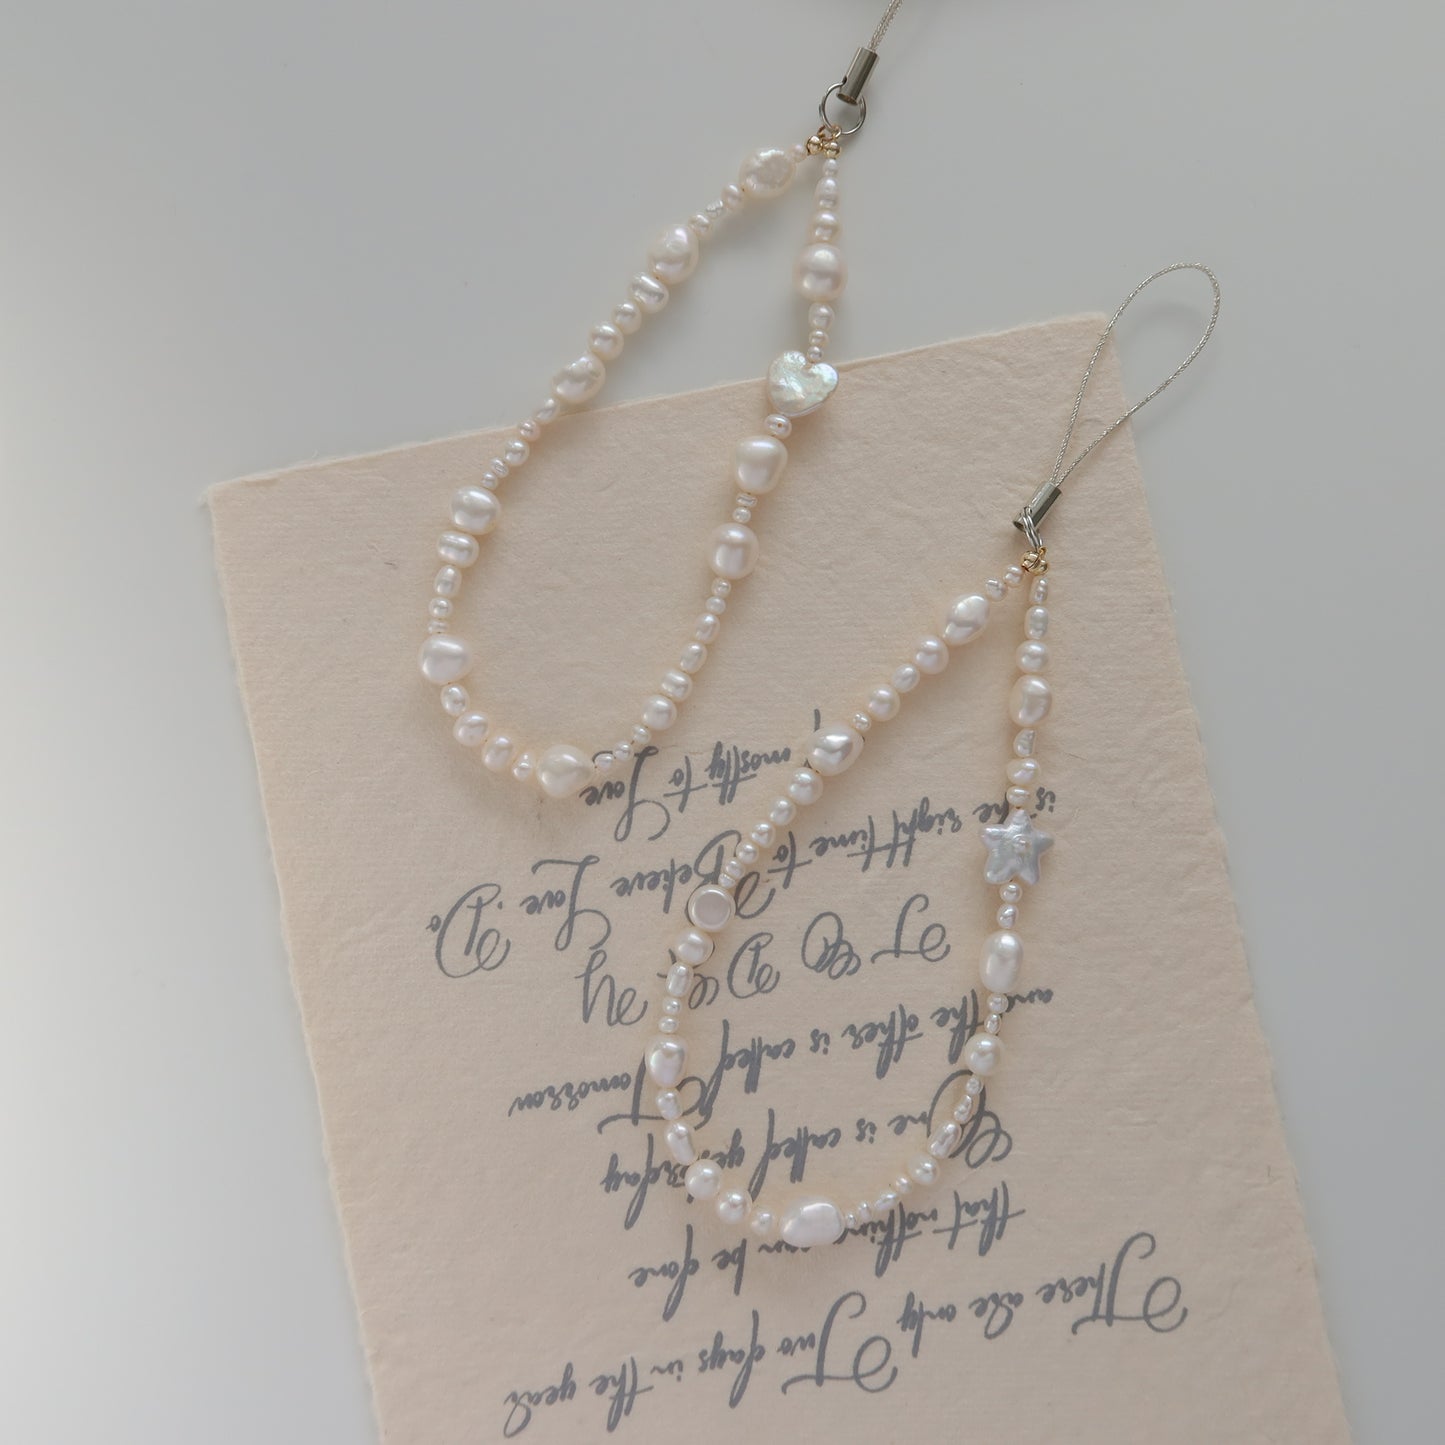 There are only Two days in the year
that nothing can be done
One is called yesterday
and the other is called Tomorrow
TODAY
is the right time to Believe Love .Do
mostly to Love